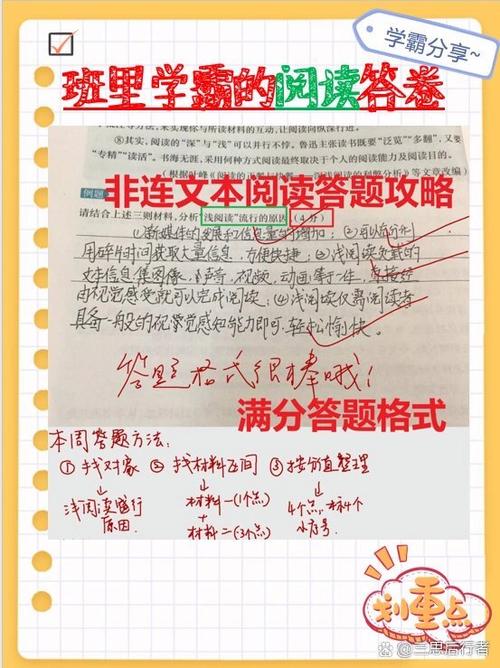 学霸分享~
班里学霸的阅读答卷
来实现你与所读材料的互动,让阅读向纵深行进。
⑧其实,阅读的“深”与“浅”可以并行不悖。鲁迅主张读书既要“泛览”“多翻”,又要
“专精”“读活”。书海无涯,采用何种方式阅读最终取决于个人的阅读能力及阅读目的。
非连文本阅读答题攻略
例题
请结合上述三则材料,分析“浅阅读”流行的原因(4分)
①新媒体的发展和信息量的增加;②可以充分利
用碎片时间获取大量信息,方便快捷;③浅阅读负载的
文本信息集图像、声音、视频、动画等于一体,直接经
由视觉感受就可以完成阅读;④浅阅读仅需阅读者
具备一般的视觉感知能力即可,轻松愉快。
答题格式很棒哦!
满分答题格式
本周答题方法:
①找对象 ②找材料区间 ③按分值整理
浅阅读盛行原因
材料一(1个点)
+
材料二(3个点)
4个点,标4个小序号
划重点
三思后行者